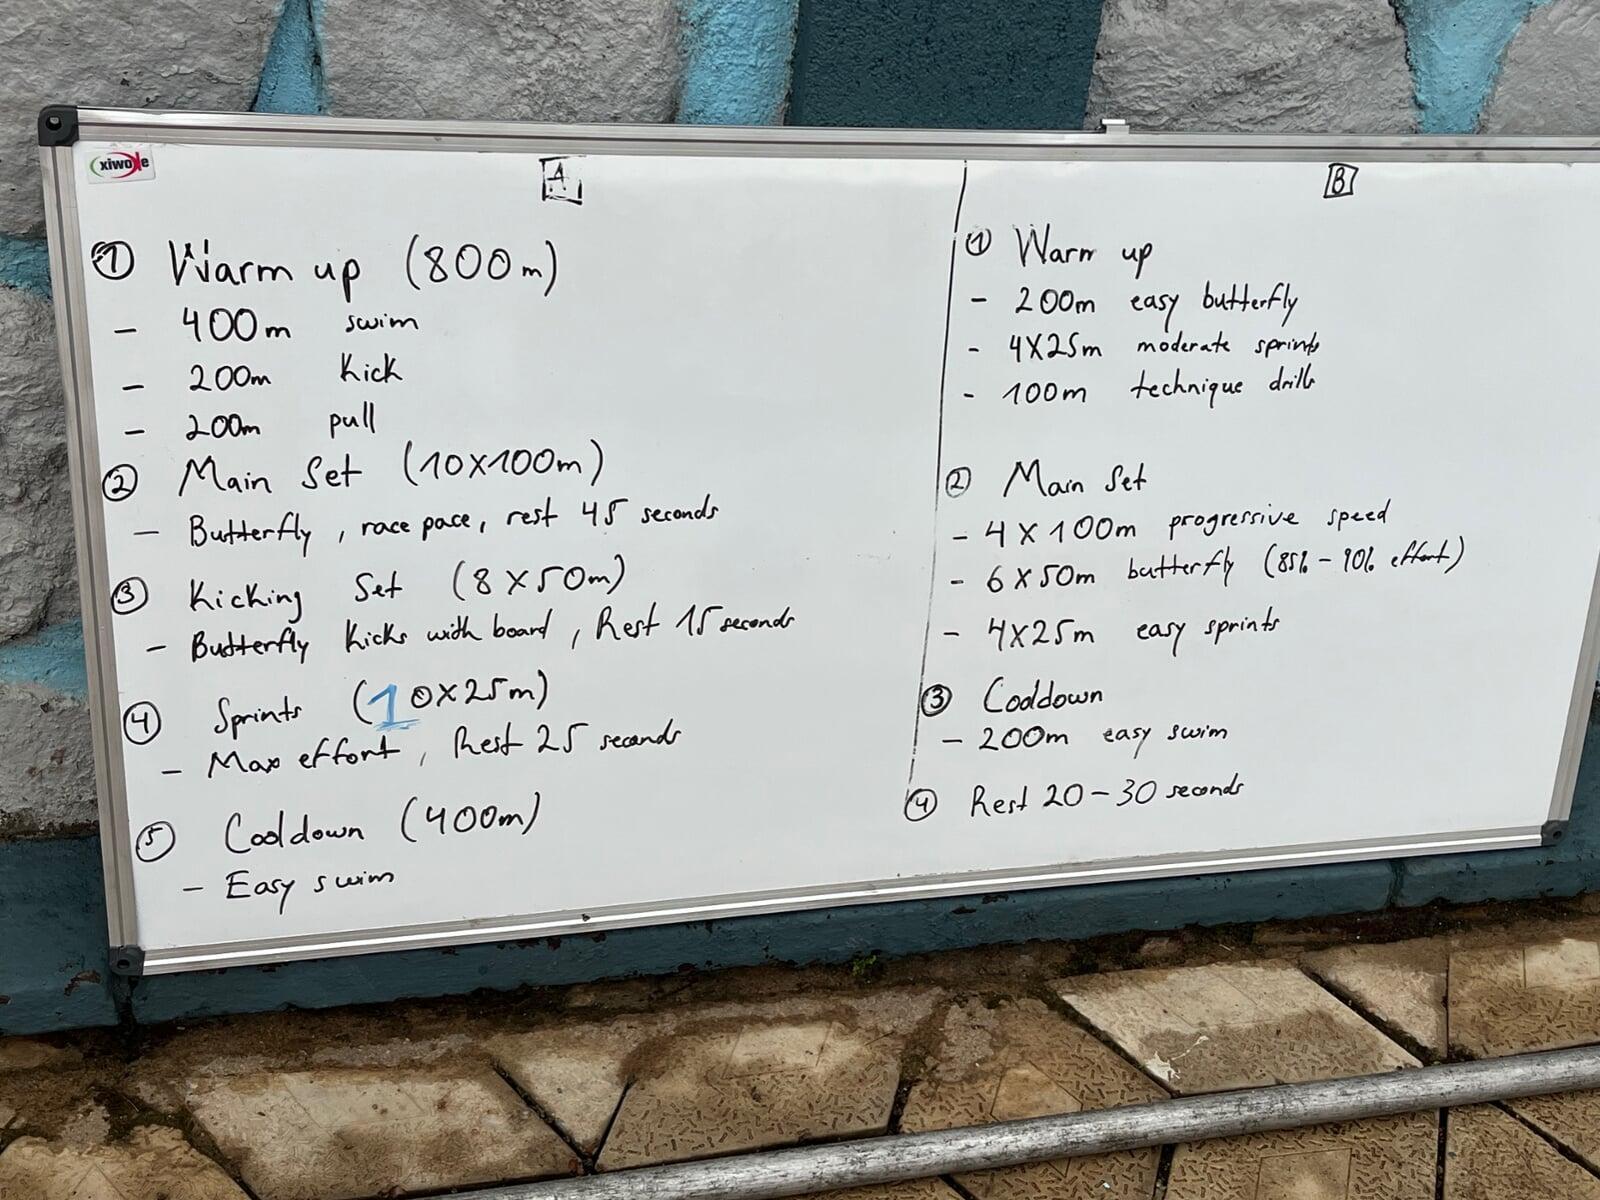 xiwoke
A
① Warm up (800m)
- 400m swim
- 200m Kick
- 200m pull
② Main Set (10X100m)
- Butterfly, race pace, rest 45 seconds
③ Kicking Set (8X50m)
- Butterfly Kicks with board, Rest 15 seconds
④ Sprints (10X25m)
- Max effort, Rest 25 seconds
⑤ Cooldown (400m)
- Easy swim
B
① Warm up
- 200m easy butterfly
- 4X25m moderate sprints
- 100m technique drills
② Main Set
- 4X100m progressive speed
- 6X50m butterfly (85% - 90% effort)
- 4X25m easy sprints
③ Cooldown
- 200m easy swim
④ Rest 20-30 seconds